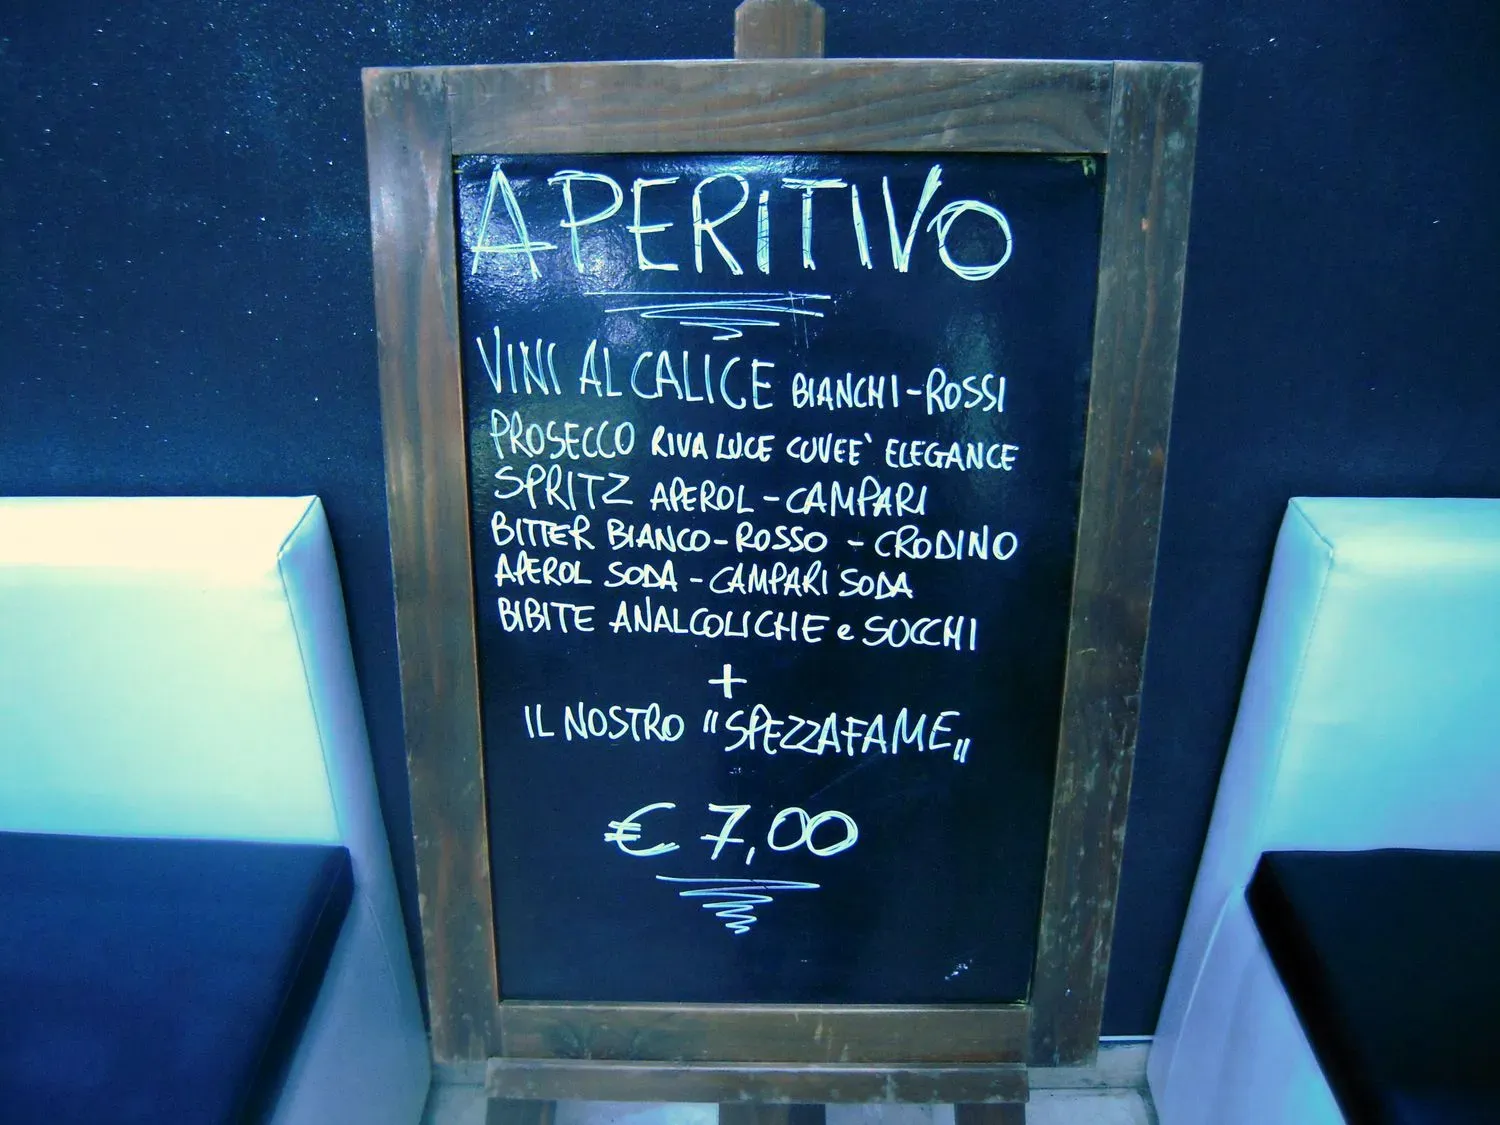 APERITIVO
VINI AL CALICE BIANCHI-ROSSI
PROSECCO RIVA LUCE CUVEE` ELEGANCE
SPRITZ APEROL - CAMPARI
BITTER BIANCO-ROSSO - CRODINO
APEROL SODA - CAMPARI SODA
BIBITE ANALCOLICHE e SUCCHI
+
IL NOSTRO "SPEZZAFAME"
€ 7,00